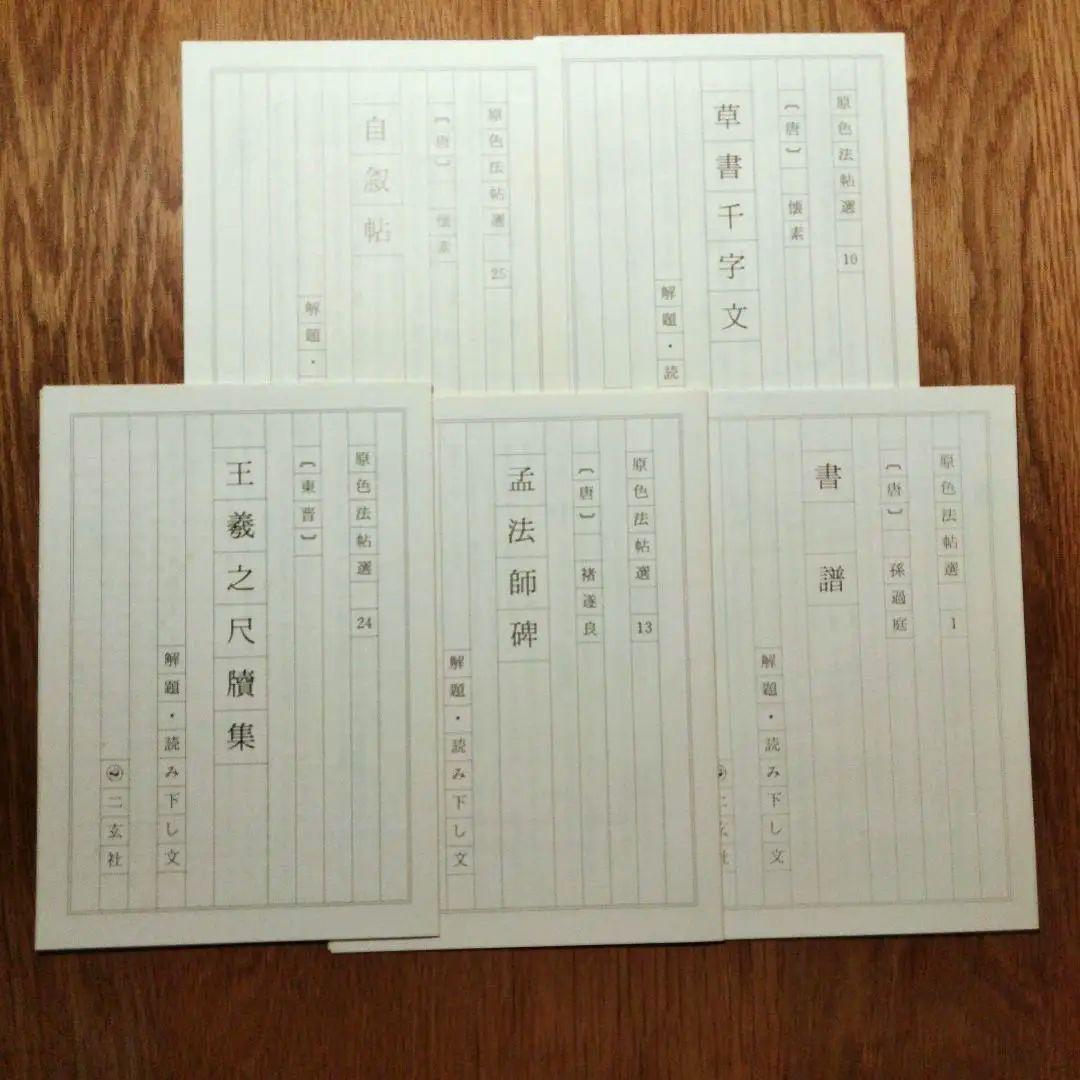 原色法帖選 25
〔唐〕 懐素
自叙帖
解題・
原色法帖選 10
〔唐〕 懐素
草書千字文
解題・読
原色法帖選 24
〔東晋〕
王羲之尺牘集
解題・読み下し文
二玄社
原色法帖選 13
〔唐〕 褚遂良
孟法師碑
解題・読み下し文
原色法帖選 1
〔唐〕 孫過庭
書譜
解題・読み下し文
二玄社